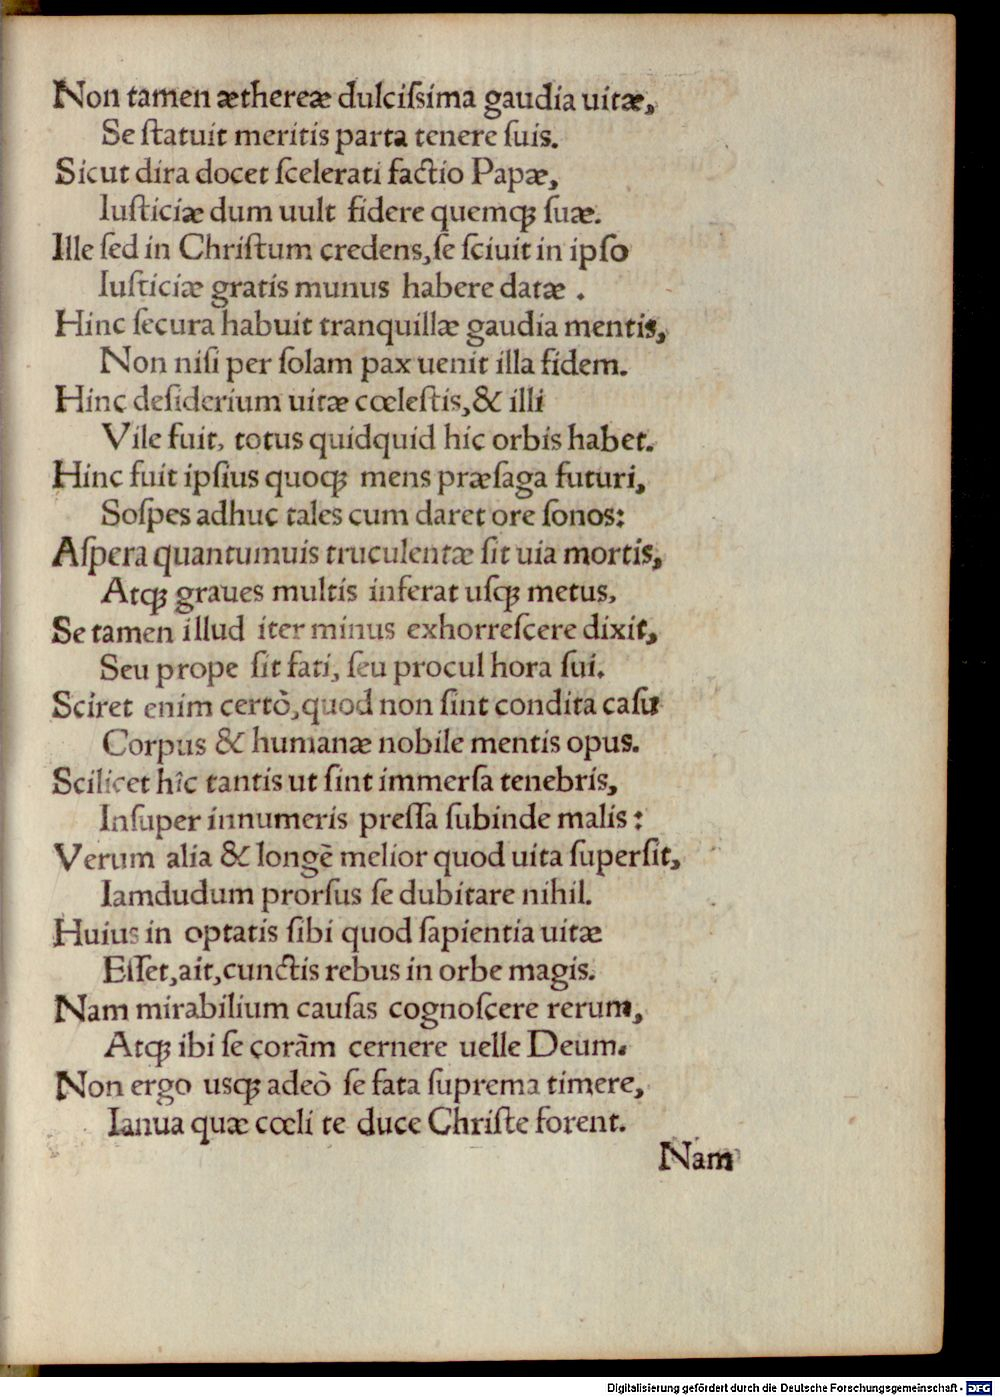 Non tamen æthereæ dulciſsima gaudia uitæ,
Se ſtatuit meritis parta tenere ſuis.
Sicut dira docet ſcelerati factio Papæ,
Iuſticiæ dum uult fidere quemqꝫ ſuæ.
Ille ſed in Chriſtum credens, ſe ſciuit in ipſo
Iuſticiæ gratis munus habere datæ .
Hinc ſecura habuit tranquillæ gaudia mentis,
Non niſi per ſolam pax uenit illa fidem.
Hinc deſiderium uitæ cœleſtis, & illi
Vile fuit, totus quidquid hic orbis habet.
Hinc fuit ipſius quoqꝫ mens præſaga futuri,
Soſpes adhuc tales cum daret ore ſonos:
Aſpera quantumuis truculentæ ſit uia mortis,
Atqꝫ graues multis inferat uſqꝫ metus,
Se tamen illud iter minus exhorreſcere dixit,
Seu prope ſit fati, ſeu procul hora ſui.
Sciret enim certò, quod non ſint condita caſu
Corpus & humanæ nobile mentis opus.
Scilicet hîc tantis ut ſint immerſa tenebris,
Inſuper innumeris preſſa ſubinde malis :
Verum alia & longè melior quod uita ſuperſit,
Iamdudum prorſus ſe dubitare nihil.
Huius in optatis ſibi quod ſapientia uitæ
Eſſet, ait, cunctis rebus in orbe magis.
Nam mirabilium cauſas cognoſcere rerum,
Atqꝫ ibi ſe coràm cernere uelle Deum.
Non ergo usqꝫ adeò ſe fata ſuprema timere,
Ianua quæ cœli te duce Chriſte forent.
Nam
Digitalisierung gefördert durch die Deutsche Forschungsgemeinschaft - DFG